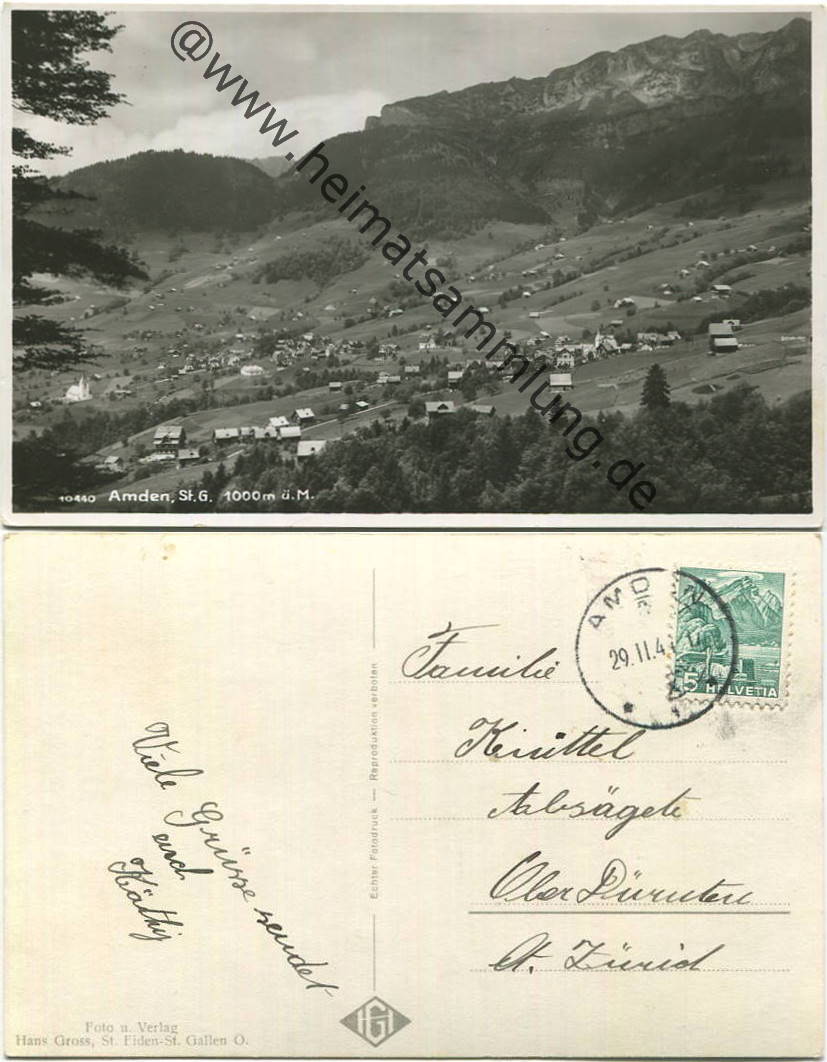 @www.heimatsammlung.de
10440 Amden, St.G. 1000m ü.M.
AMDEN
29.II.4
5 HELVETIA
Familie
Knittel
Absägete
Ober Dürnten
Ct. Zürich
Viele Grüsse sendet
euch
Käthj
Echter Fotodruck — Reproduktion verboten
HGI
Foto u. Verlag
Hans Gross, St. Fiden-St. Gallen O.